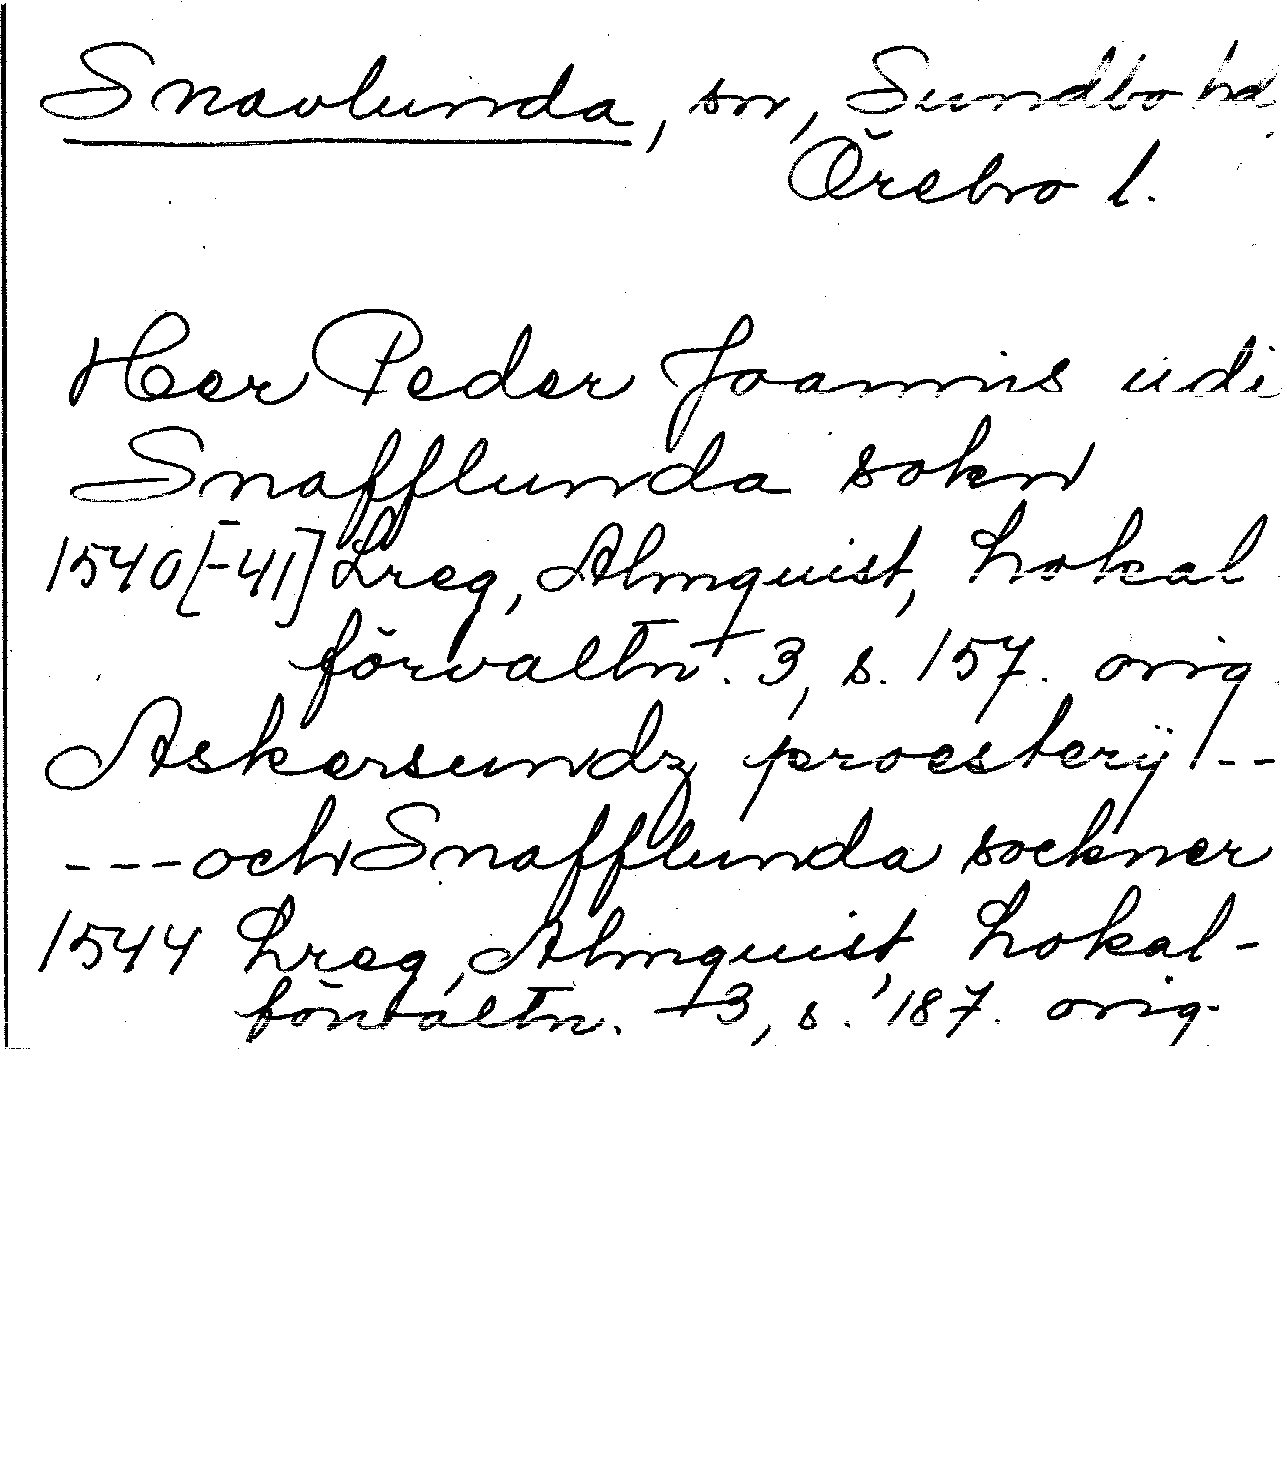 Snavlunda, sn, Sundbo hd,
Örebro l.
Her Peder Joannis udi
Snafflunda sokn
1540[-41] Lreg, Almquist, Lokal
förvaltn. + 3, s. 157. orig.
Askersundz proesterij ---
--- och Snafflunda sockner
1544 Lreg, Almquist, Lokal-
förvaltn. + 3, s. 187. orig.